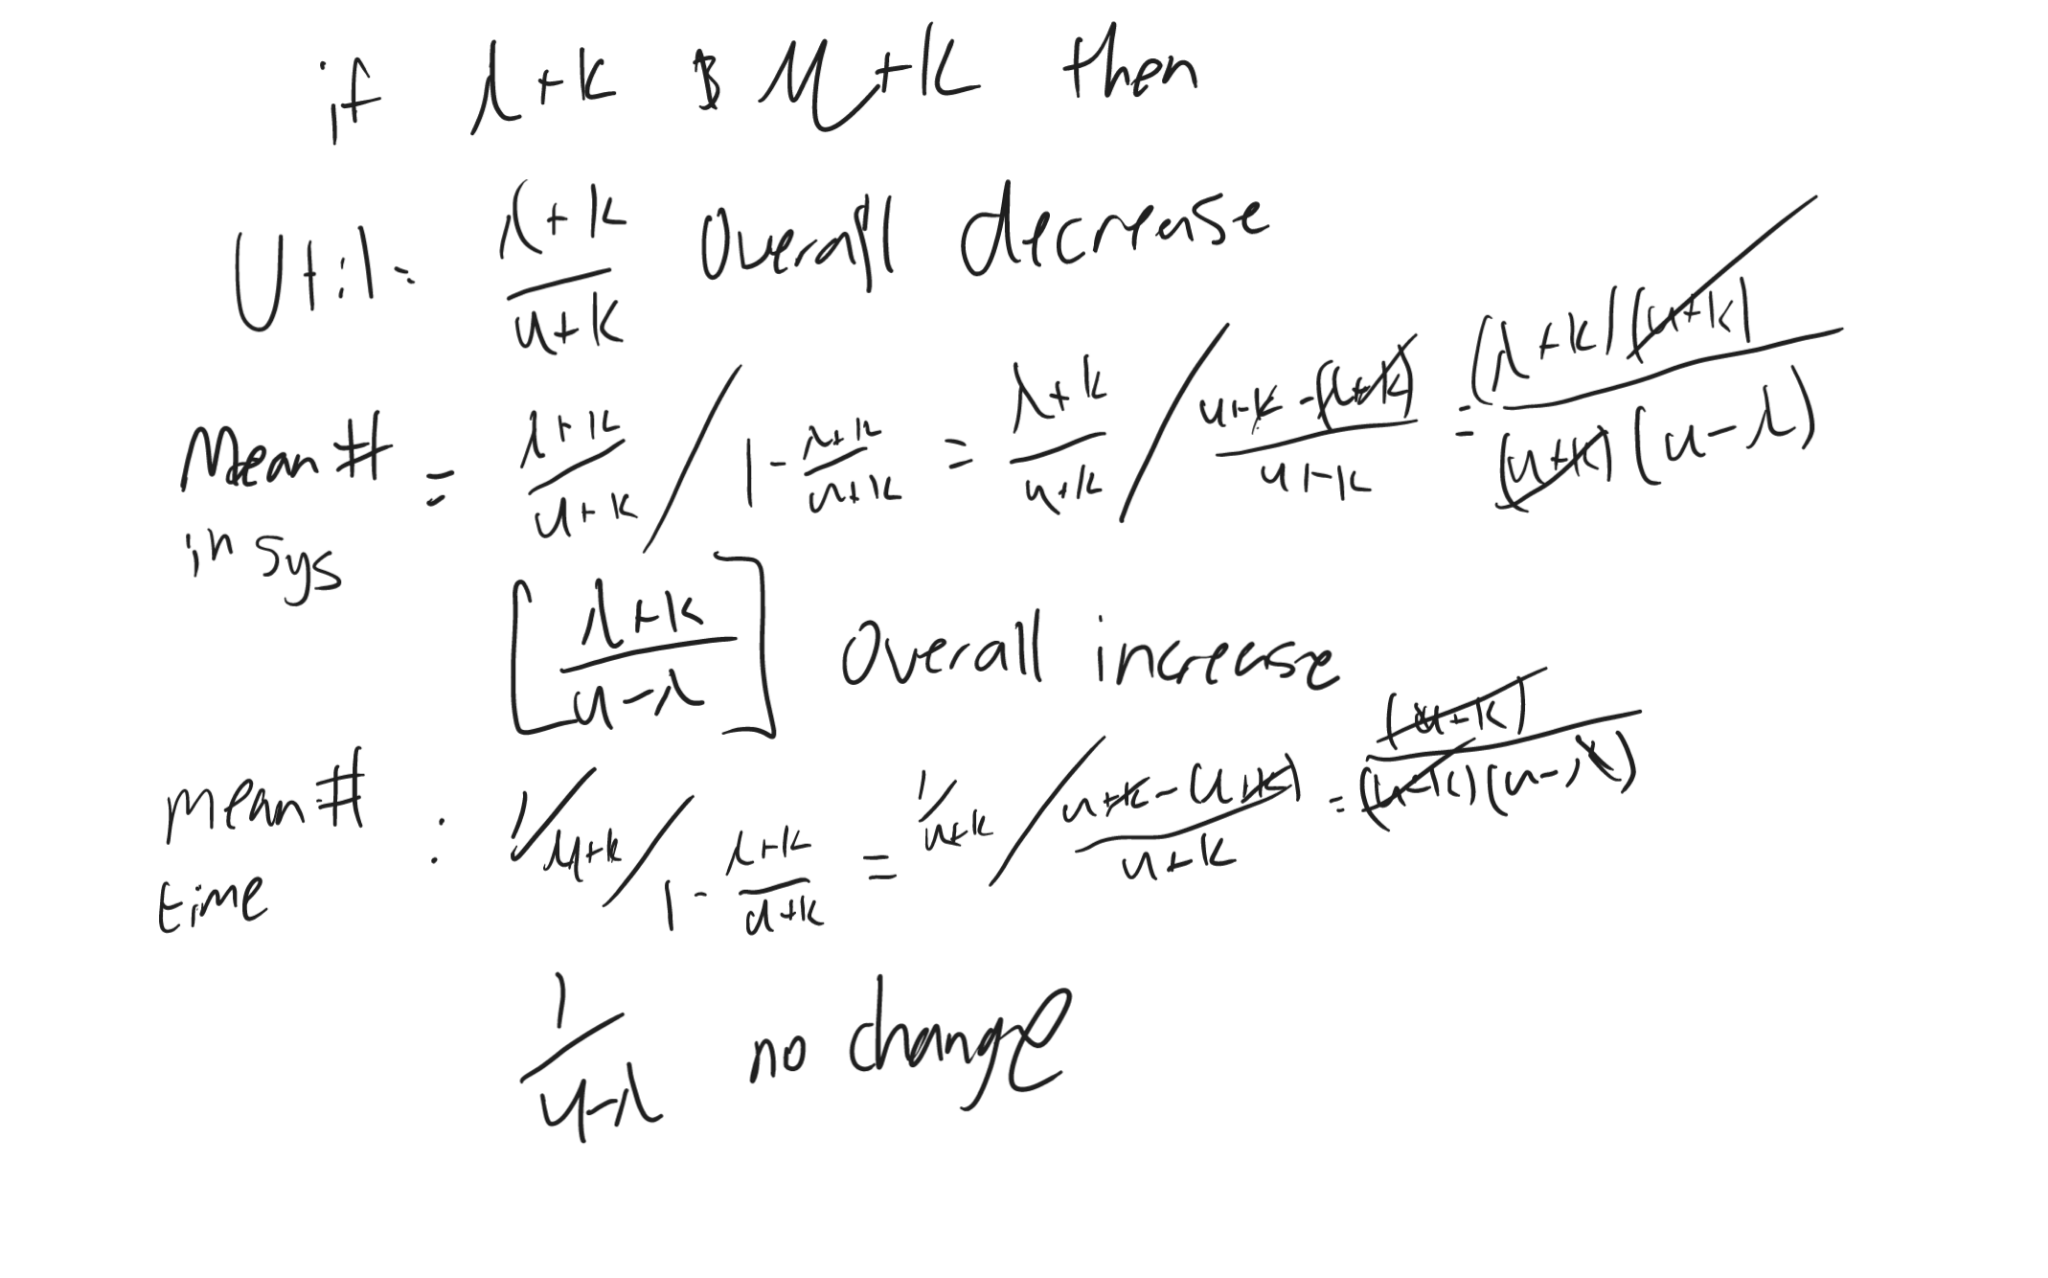 if λ+k & μ+k then
Util = (λ+k)/(u+k) Overall decrease
Mean # in sys = (λ+k)/(u+k) / 1 - (λ+k)/(u+k) = (λ+k)/(u+k) / (u+k-(λ+k))/(u+k) = (λ+k)(u+k)/(u+k)(u-λ)
[(λ+k)/(u-λ)] Overall increase
mean # time : 1/μ+k / 1 - (λ+k)/(u+k) = 1/u+k / (u+k-(λ+k))/(u+k) = (u+k)/(u+k)(u-λ)
1/(u-λ) no change